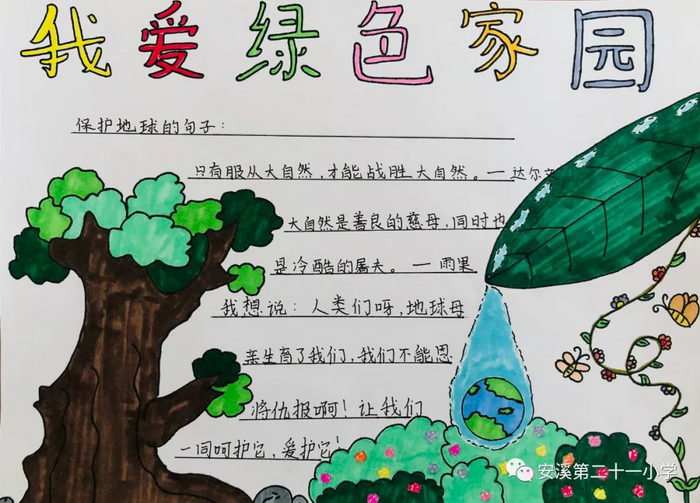 我爱绿色家园
保护地球的句子：
只有服从大自然，才能战胜大自然。——达尔
大自然是善良的慈母，同时也
是冷酷的屠夫。——雨果
我想说：人类们呀，地球母
亲生育了我们，我们不能恩
将仇报啊！让我们
一同呵护它，爱护它！
安溪第二十一小学